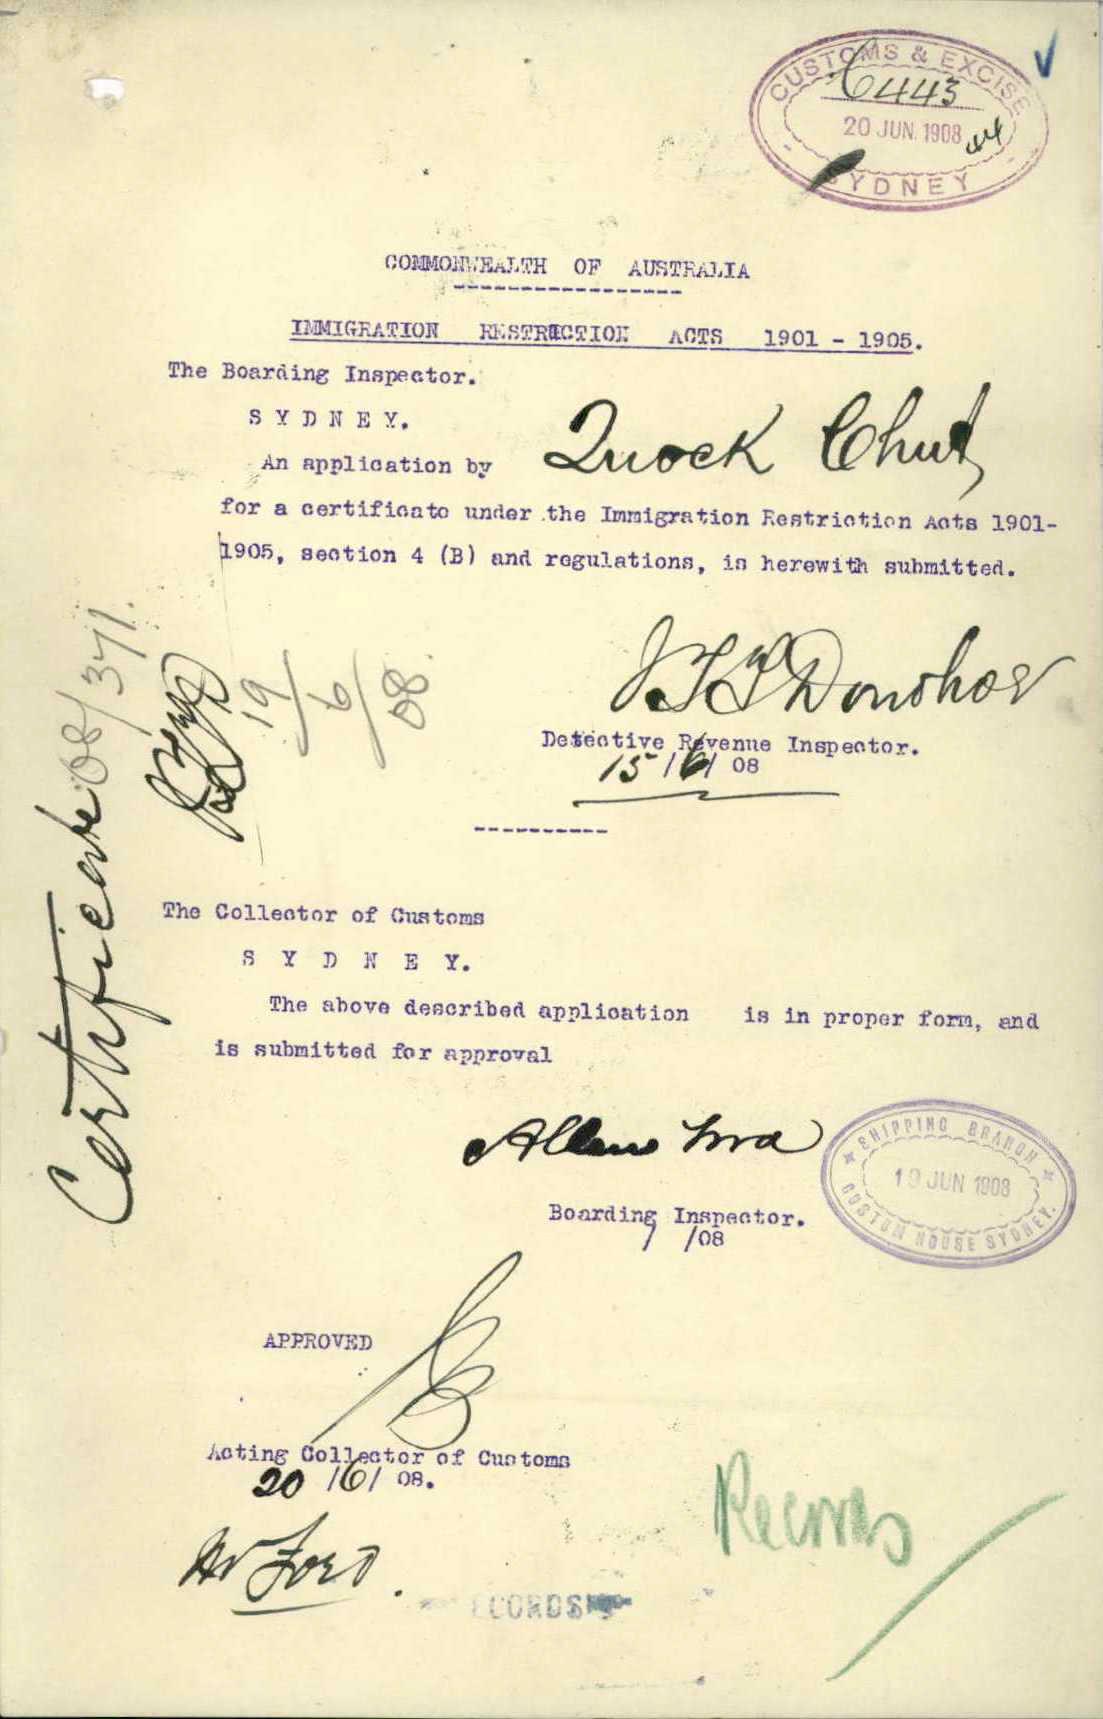 CUSTOMS & EXCISE
C6443
20 JUN. 1908
44
SYDNEY
COMMONWEALTH OF AUSTRALIA
IMMIGRATION RESTRICTION ACTS 1901 - 1905.
The Boarding Inspector.
S Y D N E Y.
An application by Quock Chut
for a certificate under the Immigration Restriction Acts 1901-
1905, section 4 (B) and regulations, is herewith submitted.
Donohoe
Detective Revenue Inspector.
15/6/08
Certificate 08/371.
19/6/08.
The Collector of Customs
S Y D N E Y.
The above described application is in proper form, and
is submitted for approval
SHIPPING BRANCH
19 JUN 1908
CUSTOM HOUSE SYDNEY.
Boarding Inspector.
/ /08
APPROVED
Acting Collector of Customs
20/6/08.
Mr Ford.
Records
ECORDS